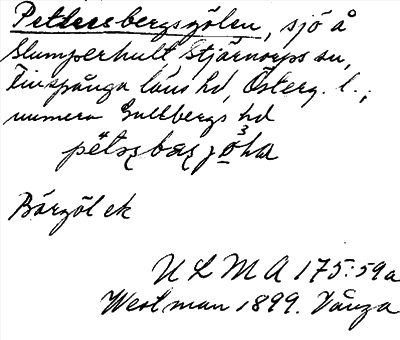 Pettersbergsgölen, sjö å
Slumperhult Stjärnorps sn,
Finspånga läns hd, Österg. l.,
numera Gullbergs hd
Bärgöl ek
ULMA 175:59a
Westman 1899. Vånga